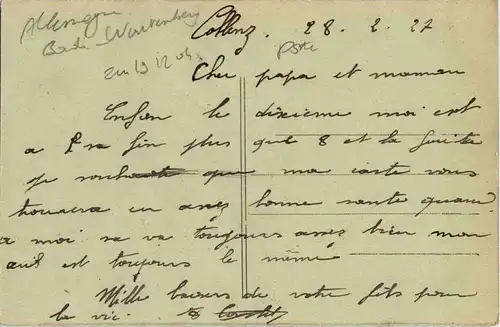 Allemagne
Bade-Wurtemberg
Coblenz. 28. 2. 27
Cher papa et maman
Enfin le dixieme moi est
a sa fin plus que 8 et la fuite
je souhaite que ma carte vous
trouvera en assez bonne sante quand
a moi sa va toujours assez bien mon
aussi est toujours le même
Mille baisers de votre fils pour
la vie.